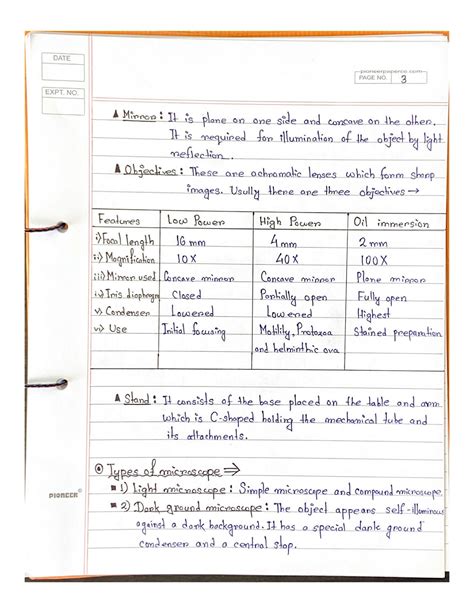 DATE
EXPT. NO.
pioneerpaperco.com
PAGE NO. 3
▲ Mirror : It is plane on one side and concave on the other.
It is required for illumination of the object by light
reflection.
▲ Objectives : These are achromatic lenses which form sharp
images. Usully there are three objectives →
Features Low Power High Power Oil immersion
i) Focal length 16 mm 4 mm 2 mm
ii) Magnification 10 X 40 X 100 X
iii) Mirror used Concave mirror Concave mirror Plane mirror
iv) Iris diaphragm Closed Partially open Fully open
v) Condenser Lowered Lowered Highest
vi) Use Initial focusing Motility, Protozoa Stained preparation
and helminthic ova
▲ Stand : It consists of the base placed on the table and arm
which is C-shaped holding the mechanical tube and
its attachments.
Types of microscope ⇒
■ 1) Light microscope : Simple microscope and compound microscope.
■ 2) Dark ground microscope : The object appears self-illuminous
against a dark background. It has a special dark ground
condenser and a central stop.
PIONEER